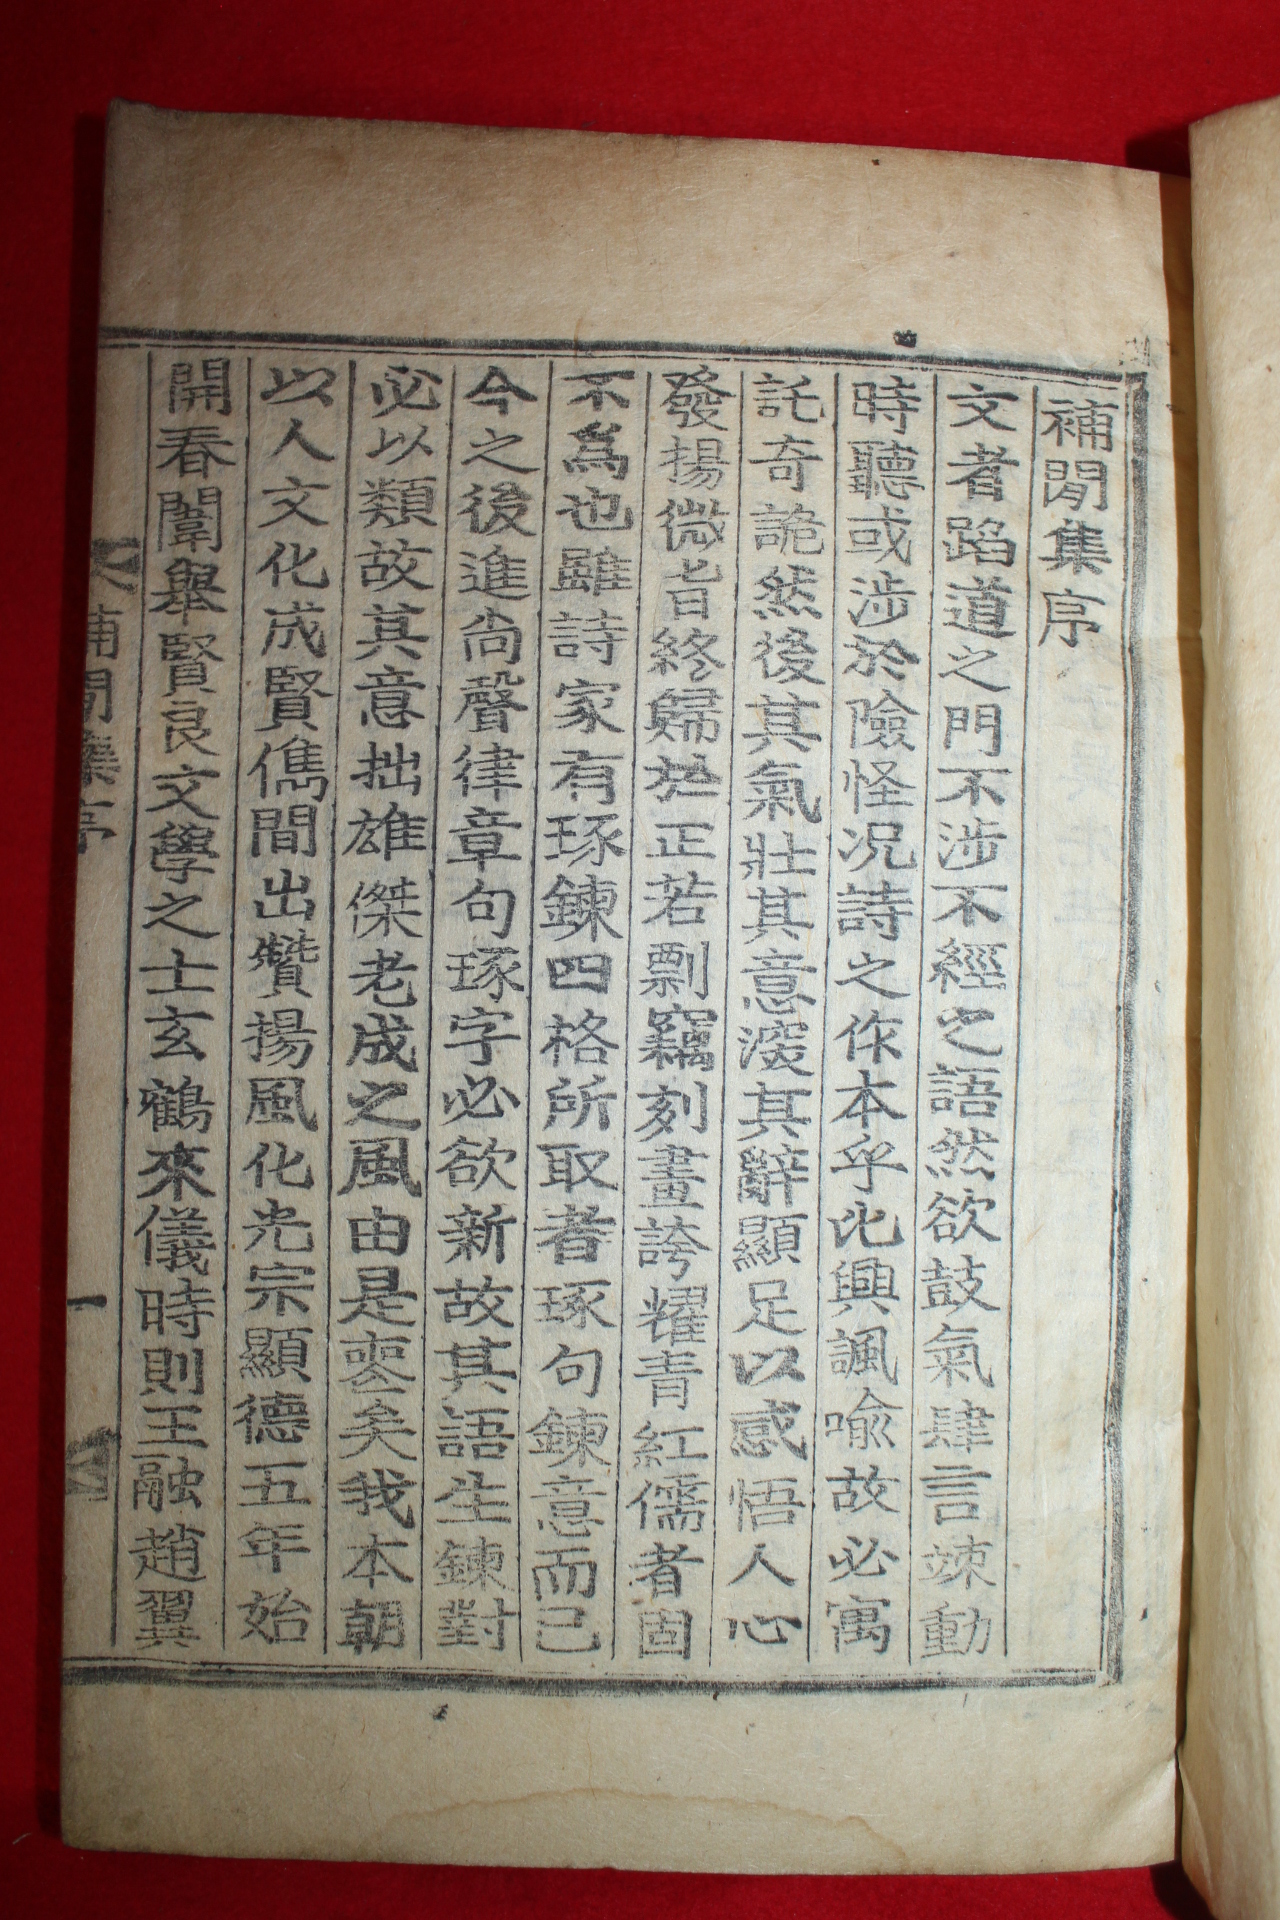 補閑集序
文者蹈道之門不涉不經之語然欲鼓氣肆言竦動
時聽或涉於險怪況詩之作本乎比興諷喩故必寓
託奇詭然後其氣壯其意深其辭顯足以感悟人心
發揚微旨終歸於正若剽竊刻畫誇耀青紅儒者固
不爲也雖詩家有琢鍊四格所取者琢句鍊意而已
今之後進尙聲律章句琢字必欲新故其語生鍊對
必以類故其意拙雄傑老成之風由是喪矣我本朝
以人文化成賢儁間出贊揚風化光宗顯德五年始
開春闈舉賢良文學之士玄鶴來儀時則王融趙翼
補閑集序
一